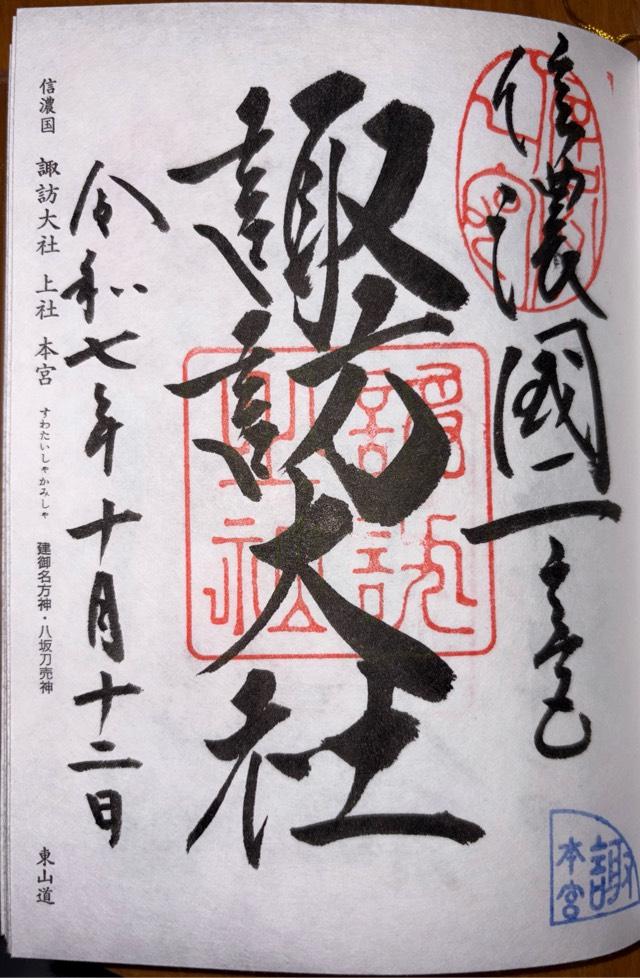 信濃國一之宮
諏訪大社
諏訪
上社
令和七年十月十二日
信濃国 諏訪大社 上社 本宮 すわたいしゃかみしゃ 建御名方神・八坂刀売神 東山道
諏
本宮